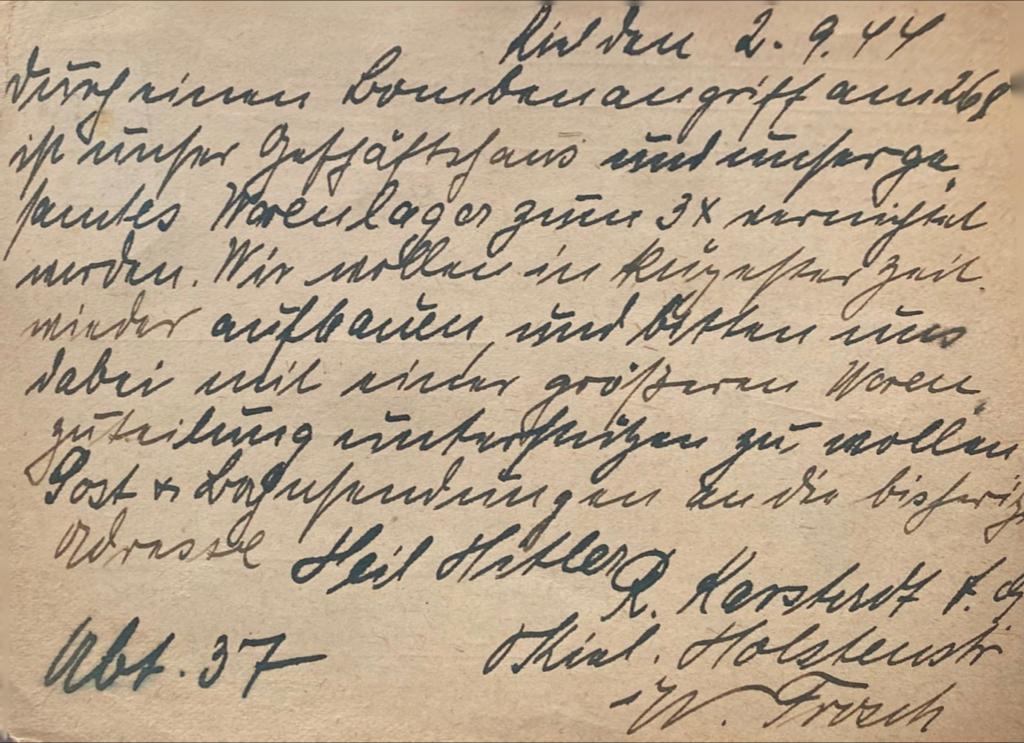 Kiel den 2.9.44
Durch einen Bombenangriff am 26.8
ist unser Geschäftshaus und unser ge-
samtes Warenlager zum 3x vernichtet
worden. Wir wollen in kürzester Zeit
wieder aufbauen und bitten uns
dabei mit einer größeren Waren-
zuteilung unterstützen zu wollen
Post & Bahnsendungen an die bisherige
Adresse
Heil Hitler
R. Karstedt
Abt. 37
Kiel. Holstenstr
W. Frosch